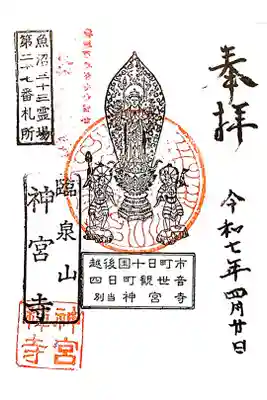 奉拝
令和七年四月廿日
魚沼三十三霊場
第二十七番札所
臨泉山
神宮寺
越後国十日町市
四日町観世音
別当神宮寺
神宮
禅寺